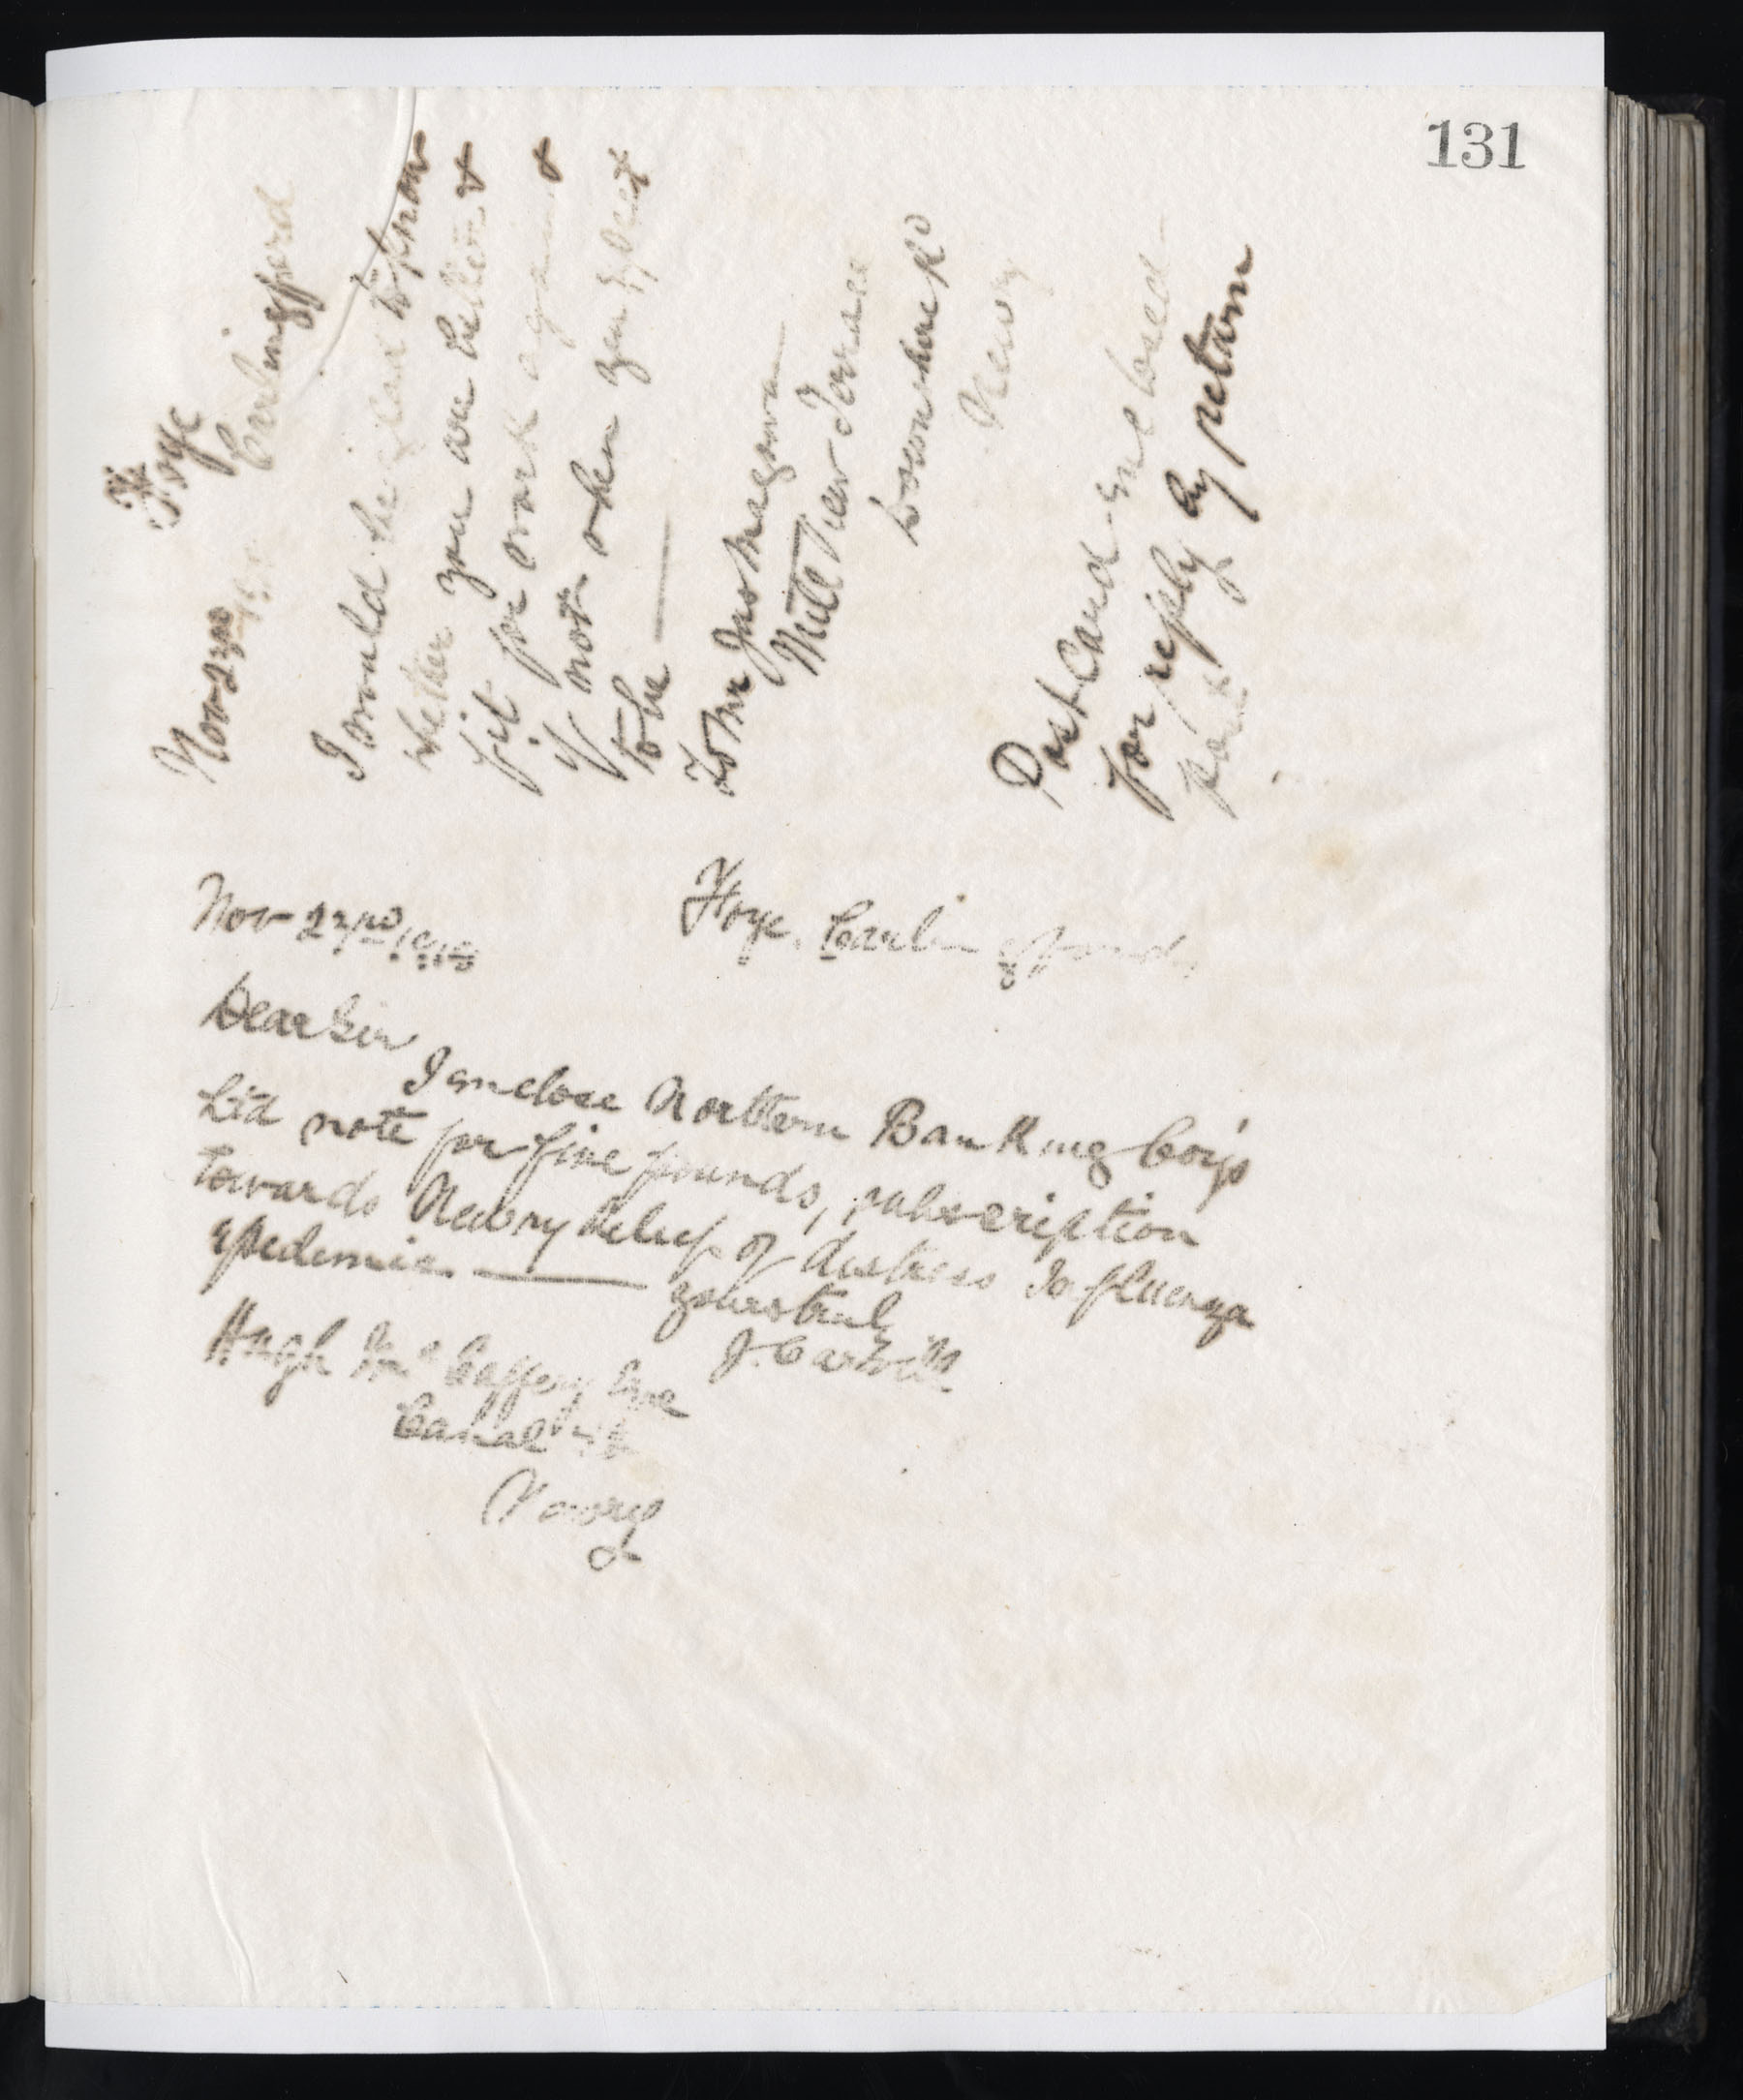 131
Foye
Carlingford
Nov 23rd
I would be glad to know
whether you are better &
fit for work again &
if not when you expect
to be
To Mr Jno Magowan
Mill View Terrace
Downshire Rd
Newry
Post Card enclosed
for reply by return
post
Nov 23rd 1918
Foye, Carlingford
Dear Sir
I enclose Northern Banking Coy's
Ltd note for five pounds, subscription
towards Newry Relief of distress Influenza
epedemic
yours truly
J. Carvill
Hugh McCaffery Esqe
Canal St
Newry